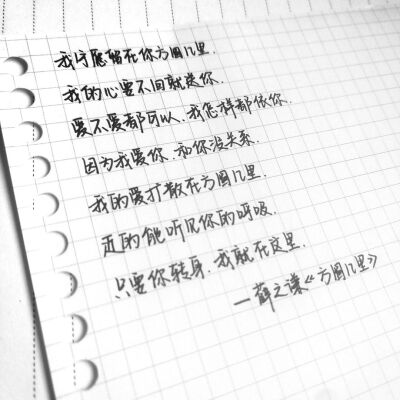 我宁愿留在你方圆几里.
我的心要不回就送你.
爱不爱都可以,我怎样都依你.
因为我爱你,和你没关系.
我的爱扩散在方圆几里.
近的能听见你的呼吸.
只要你转身,我就在这里.
—薛之谦《方圆几里》